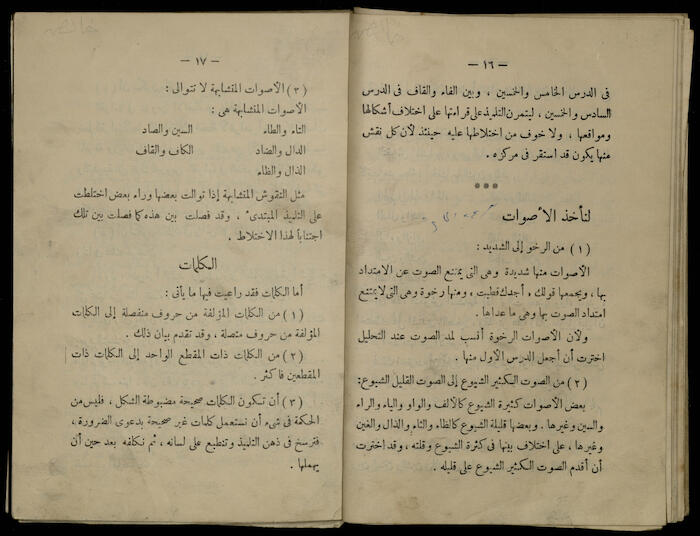 — ١٦ —
فى الدرس الخامس والخمسين ، وبين الفاء والقاف فى الدرس
السادس والخمسين ، ليتمرن التلميذ على قراءتها على اختلاف أشكالها
ومواقعها ، ولا خوف من اختلاطها عليه حينئذ لأن كل نقش
منها يكون قد استقر فى مركزه .
***
لنأخذ الأصوات
( ١ ) من الرخو إلى الشديد :
الأصوات منها شديدة وهى التى يمتنع الصوت عن الامتداد
بها ، ويجمعها قولك « أجدك قطبت » ومنها رخوة وهى التى لا يمتنع
امتداد الصوت بها وهى ما عداها .
ولأن الأصوات الرخوة أنسب لمد الصوت عند التحليل
اخترت أن أجعل الدرس الأول منها .
( ٢ ) من الصوت الكثير الشيوع إلى الصوت القليل الشيوع :
بعض الأصوات كثيرة الشيوع كالألف والواو والياء والراء
والسين وغيرها . وبعضها قليلة الشيوع كالظاء والثاء والذال والغين
وغيرها ، على اختلاف بينها فى كثرة الشيوع وقلته ، وقد اخترت
أن أقدم الصوت الكثير الشيوع على قليله .
— ١٧ —
( ٣ ) الأصوات المتشابهة لا تتوالى :
الأصوات المتشابهة هى :
التاء والطاء السين والصاد
الدال والضاد الكاف والقاف
الذال والظاء
مثل النقوش المتشابهة إذا توالت بعضها وراء بعض اختلطت
على التلميذ المبتدىء ، وقد فصلت بين هذه كما فصلت بين تلك
اجتناباً لهذا الاختلاط .
الكلمات
أما الكلمات فقد راعيت فيها ما يأتى :
( ١ ) من الكلمات المؤلفة من حروف منفصلة إلى الكلمات
المؤلفة من حروف متصلة ، وقد تقدم بيان ذلك .
( ٢ ) من الكلمات ذات المقطع الواحد إلى الكلمات ذات
المقطعين فأكثر .
( ٣ ) أن تكون الكلمات صحيحة مضبوطة الشكل ، فليس من
الحكمة فى شىء أن نستعمل كلمات غير صحيحة بدعوى الضرورة ،
فترسخ فى ذهن التلميذ وتنطبع على لسانه ، ثم نكلفه بعد حين أن
يهملها .